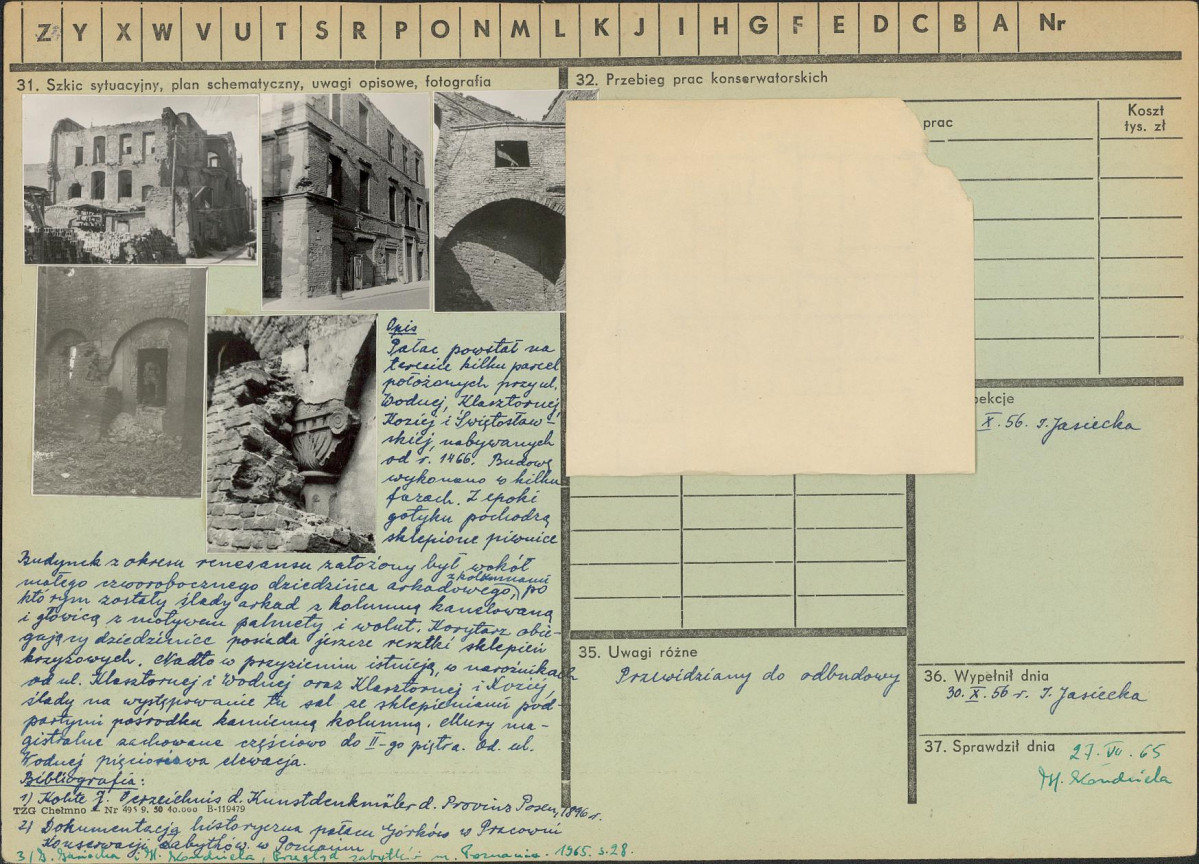 Z Y X W V U T S R P O N M L K J I H G F E D C B A Nr
31. Szkic sytuacyjny, plan schematyczny, uwagi opisowe, fotografia
Opis
Pałac powstał na
terenie kilku parcel
położonych przy ul.
Wodnej, Klasztornej,
Koziej i Świętosław-
skiej, nabywanych
od r. 1466. Budowę
wykonano w kilku
fazach. Z epoki
gotyku pochodzą
sklepione piwnice
Budynek z okresu renesansu założony był wokół
małego czworobocznego dziedzińca arkadowego, z kolumnami po
którym zostały ślady arkad z kolumną kanelowaną
i głowicą z motywem palmety i wolut. Korytarz obie-
gający dziedziniec posiada jeszcze resztki sklepień
krzyżowych. Nadto w przyziemiu istnieją, w narożnikach
od ul. Klasztornej i Wodnej oraz Klasztornej i Koziej,
ślady na występowanie tu sal ze sklepieniami pod-
partymi pośrodku kamienną kolumną. Mury ma-
gistralne zachowane częściowo do II-go piętra. Od ul.
Wodnej pięcioosiowa elewacja.
Bibliografia:
1) Kohte J. Verzeichnis d. Kunstdenkmäler d. Provinz Posen, 1896 r.
TZG Chełmno Nr 495 9. 50 40.000 B-119479
2) Dokumentacja historyczna pałacu Górków w Pracowni
Konserwacji Zabytków w Poznaniu
3/ D. i H. Kondziela, Przegląd zabytków m. Poznania. 1965. s. 28.
32. Przebieg prac konserwatorskich
prac
Koszt
tys. zł
pekcje
X. 56. I. Jasiecka
35. Uwagi różne
Przewidziany do odbudowy
36. Wypełnił dnia
30. X. 56 r. I. Jasiecka
37. Sprawdził dnia
27. VII. 65
H. Kondziela